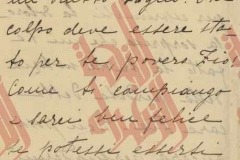 colpo deve essere sta-
to per te, povero Fior
Come ti compiango
e sarei ben felice
se potessi essersi